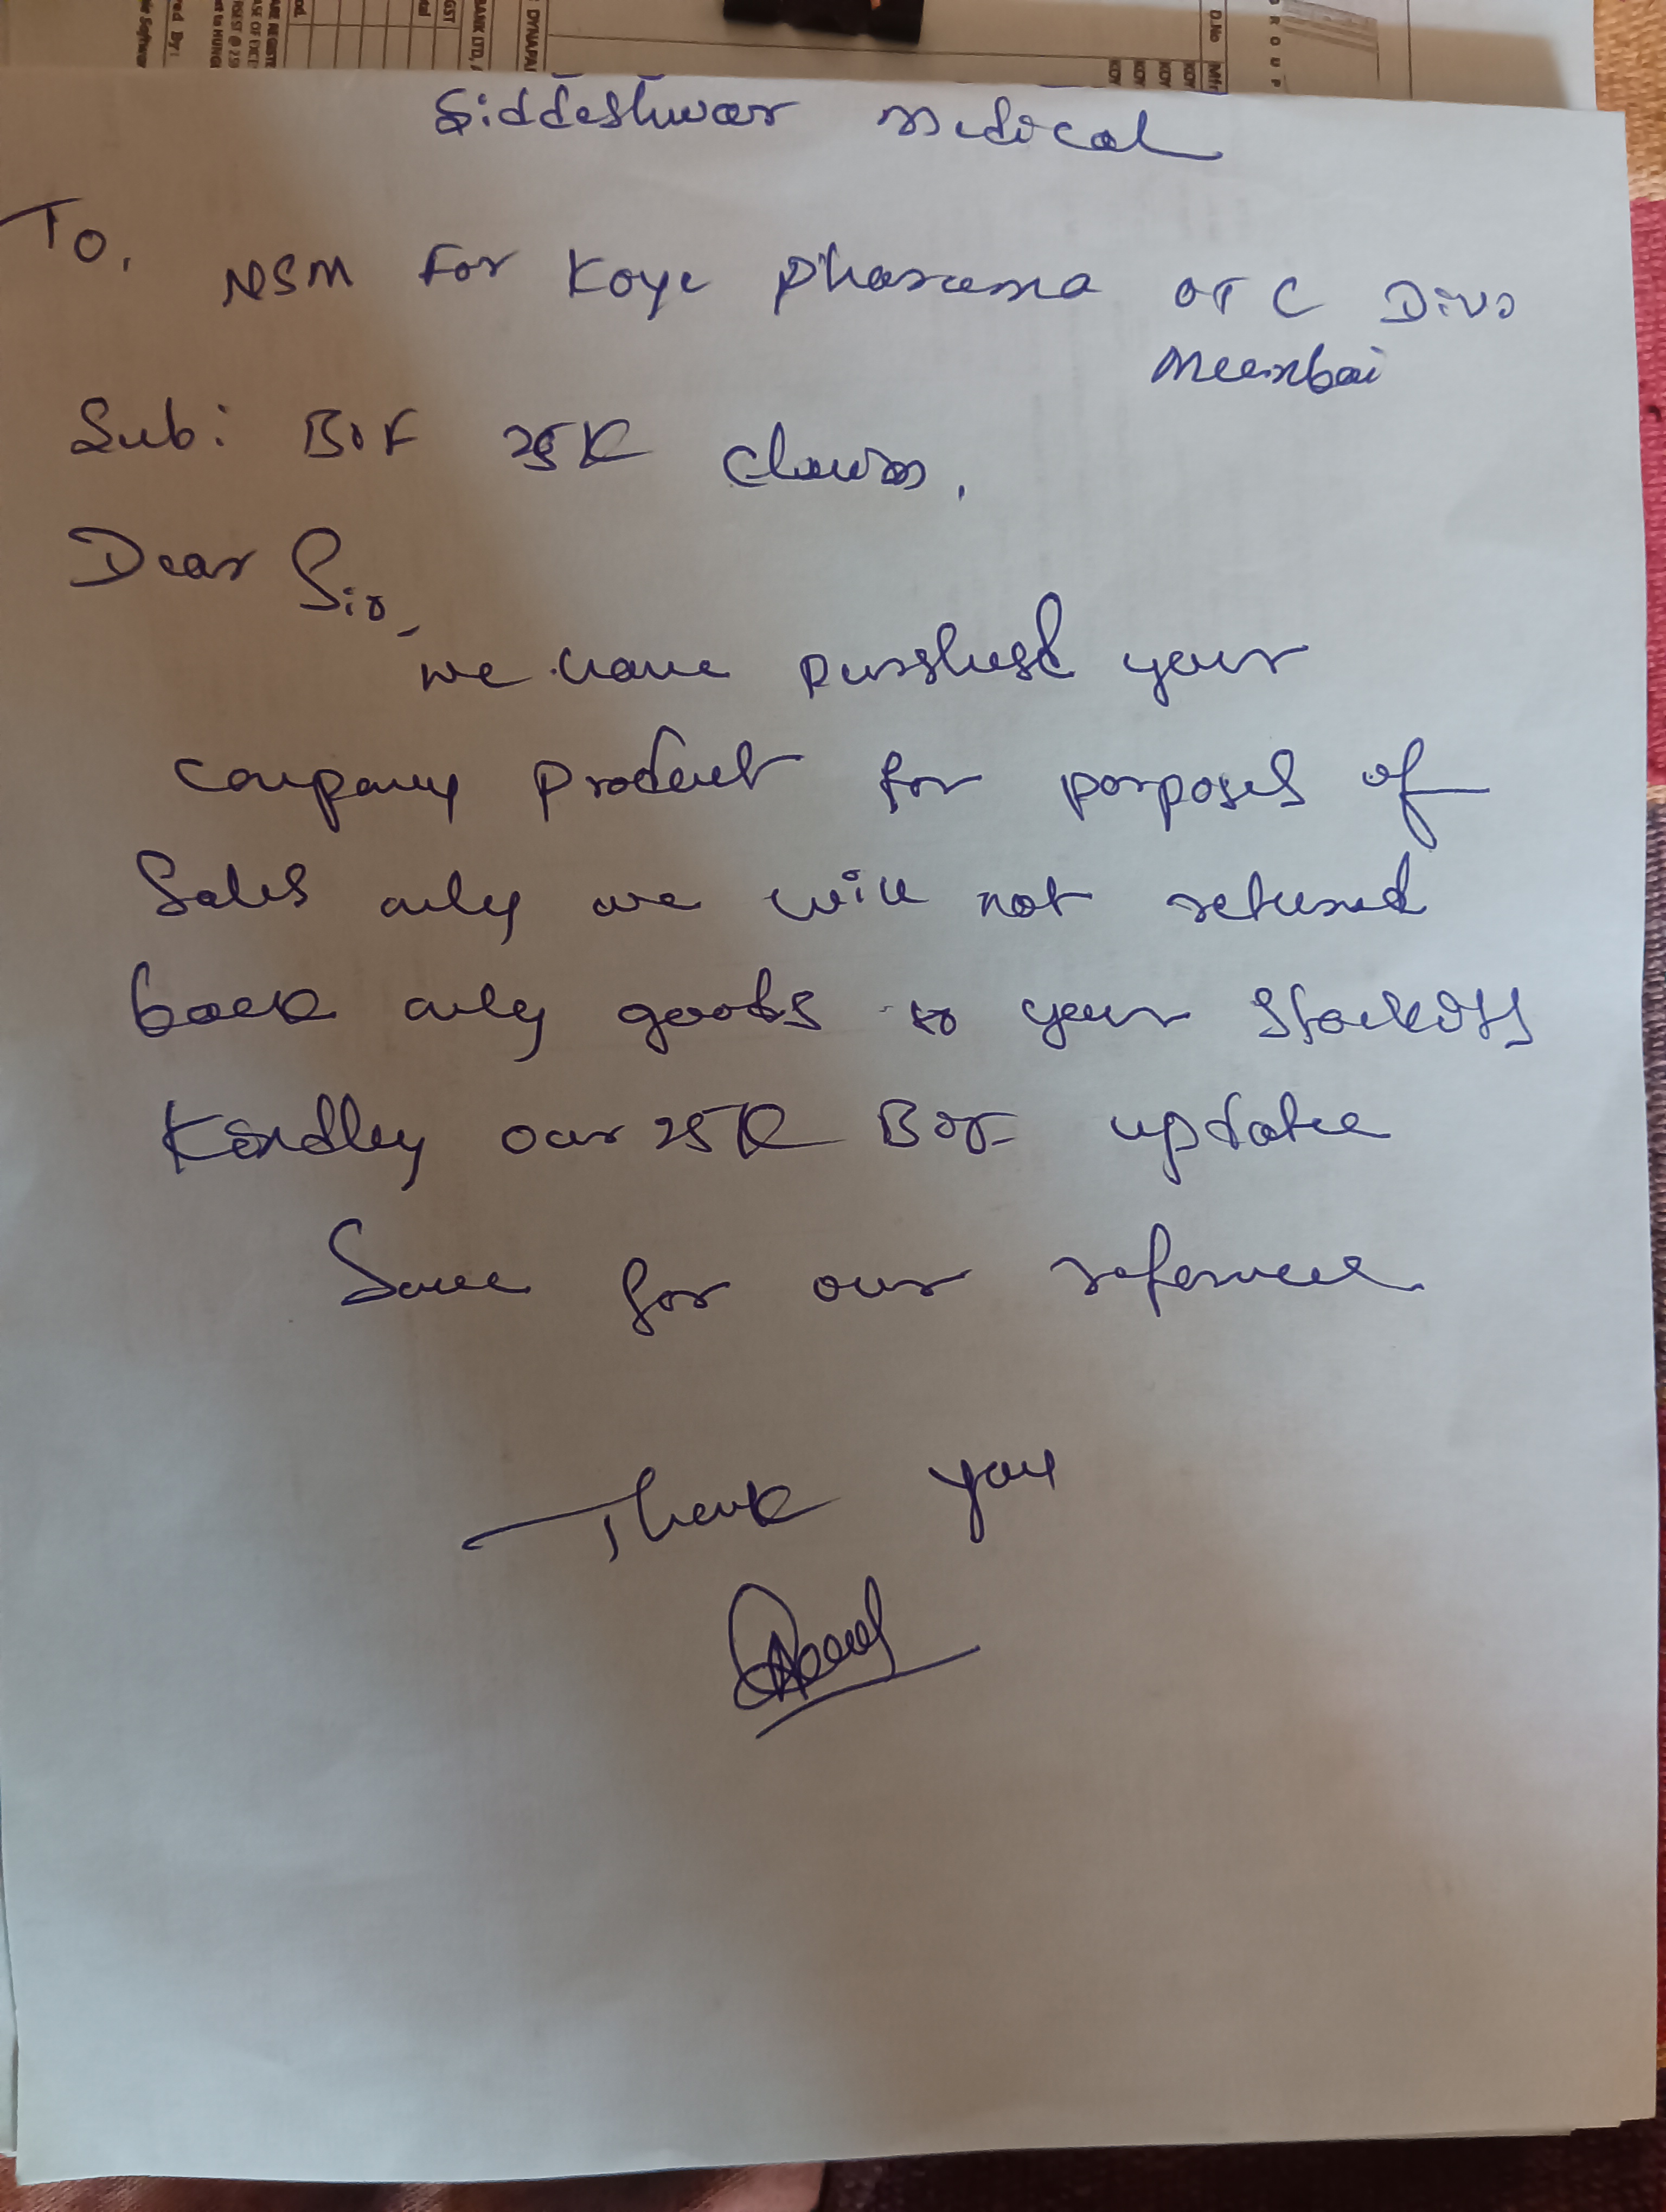 Siddeshwar medical
To,
NSM For Koye pharma OTC Divo
Mumbai
Sub: BOF 25K claim.
Dear Sir,
we have purshesd your
company product for porposes of
Sales only we will not retuned
back any goods to your stockists
Kindley our 25K BOF update
Same for our reference
Thank you